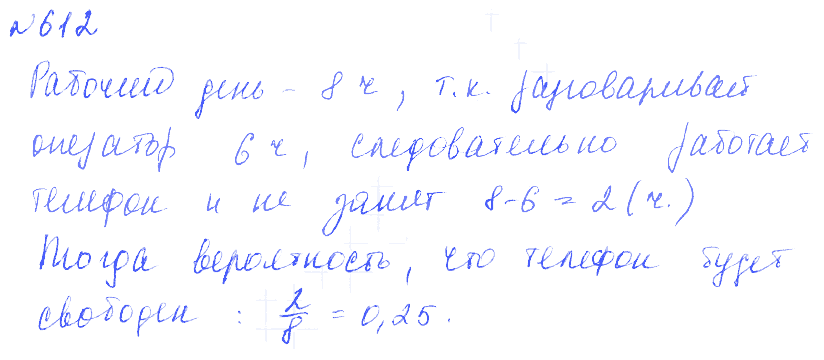 №612
Рабочий день - 8 ч, т.к. разговаривает
оператор 6 ч, следовательно работает
телефон и не занят 8-6 = 2 (ч.)
Тогда вероятность, что телефон будет
свободен : 2/8 = 0,25.